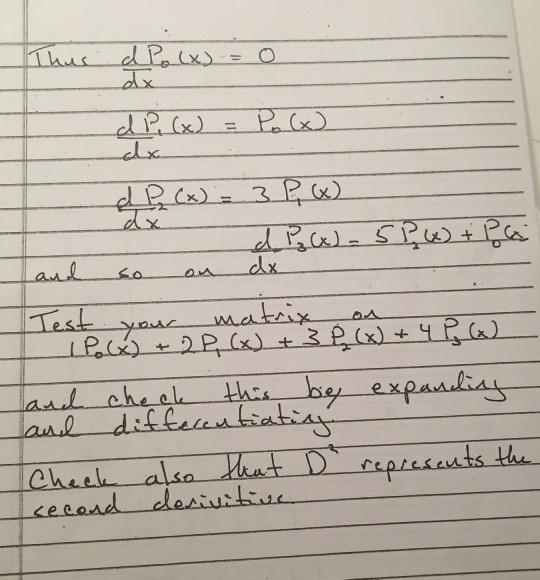 Thus d P₀(x) = 0
dx
d P₁(x) = P₀(x)
dx
d P₂(x) = 3 P₁(x)
dx
d P₃(x) = 5 P₂(x) + P₀(x
and so on dx
Test your matrix on
1P₀(x) + 2P₁(x) + 3P₂(x) + 4P₃(x)
and check this by expanding
and differentiating.
Check also that D² represents the
second derivitive